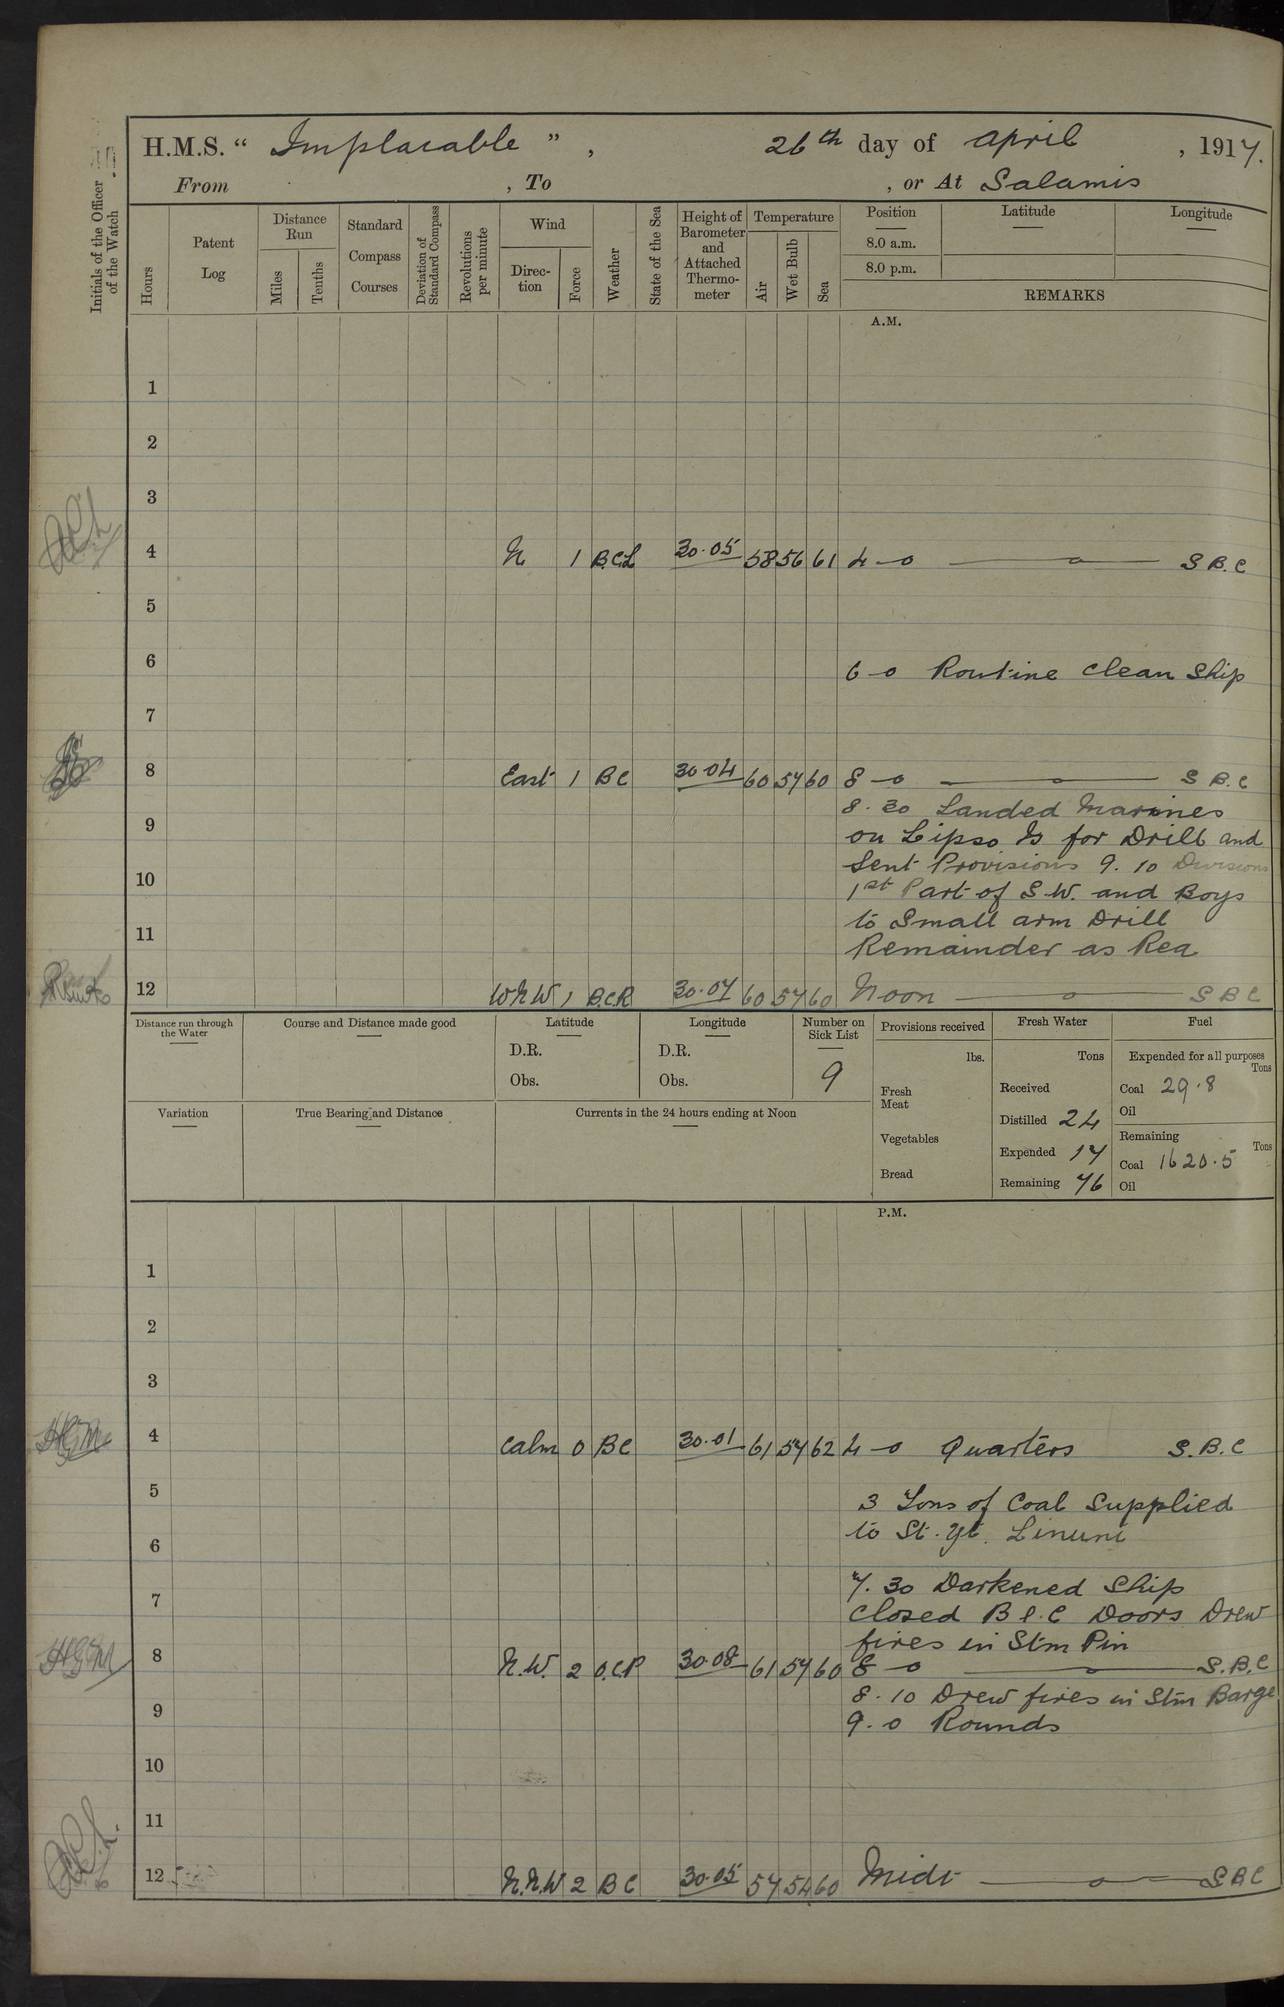 H.M.S. “ Implacable ” , 26th day of April , 1917.
From , To , or At Salamis
Initials of the Officer of the Watch
Hours
Patent Log
Distance Run
Miles
Tenths
Standard Compass Courses
Deviation of Standard Compass
Revolutions per minute
Wind
Direc-tion
Force
Weather
State of the Sea
Height of Barometer and Attached Thermo-meter
Temperature
Air
Wet Bulb
Sea
Position Latitude Longitude
8.0 a.m.
8.0 p.m.
REMARKS
A.M.
1
2
3
4 N 1 B.C.L 30.05 58 56 61 4-0 —o— S B.C
5
6 6-0 Routine Clean Ship
7
8 East 1 BC 30.04 60 57 60 8-0 —o— S B.C
8.30 Landed Marines
9 on Lipso Is for Drill and
Sent Provisions 9.10 Divisions
10 1st Part of S.W. and Boys
to Small arm Drill
11 Remainder as Req
12 WNW 1 B.C.R 30.07 60 57 60 Noon —o— S B C
Distance run through the Water
Course and Distance made good
Latitude
D.R.
Obs.
Longitude
D.R.
Obs.
Number on Sick List
9
Provisions received
lbs.
Fresh Meat
Vegetables
Bread
Fresh Water
Tons
Received
Distilled 24
Expended 17
Remaining 76
Fuel
Expended for all purposes
Tons
Coal 29.8
Oil
Remaining
Tons
Coal 1620.5
Oil
Variation
True Bearing and Distance
Currents in the 24 hours ending at Noon
P.M.
1
2
3
4 HGM Calm 0 BC 30.01 61 57 62 4-0 Quarters S.B.C
5 3 Tons of Coal Supplied
6 to St. Yt.
7.30 Darkened Ship
7 Closed B & C Doors Drew
fires in Stm Pin
8 HGM N.W. 2 O.C.P 30.08 61 57 60 8-0 —o— S.B.C
8.10 Drew fires in Stm Barge
9 9.0 Rounds
10
11
12 N.N.W 2 BC 30.05 57 54 60 Midt —o— S B C